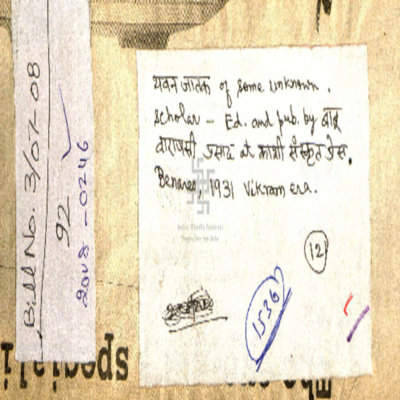 Bill No. 3/07-08
92
2008-0246
यवन जातक of some unknown.
scholar - Ed. and pub. by बाबू
वाराणसी प्रसाद at काशी संस्कृत प्रेस.
Benares, 1931 Vikram era.
12
1536
speciali